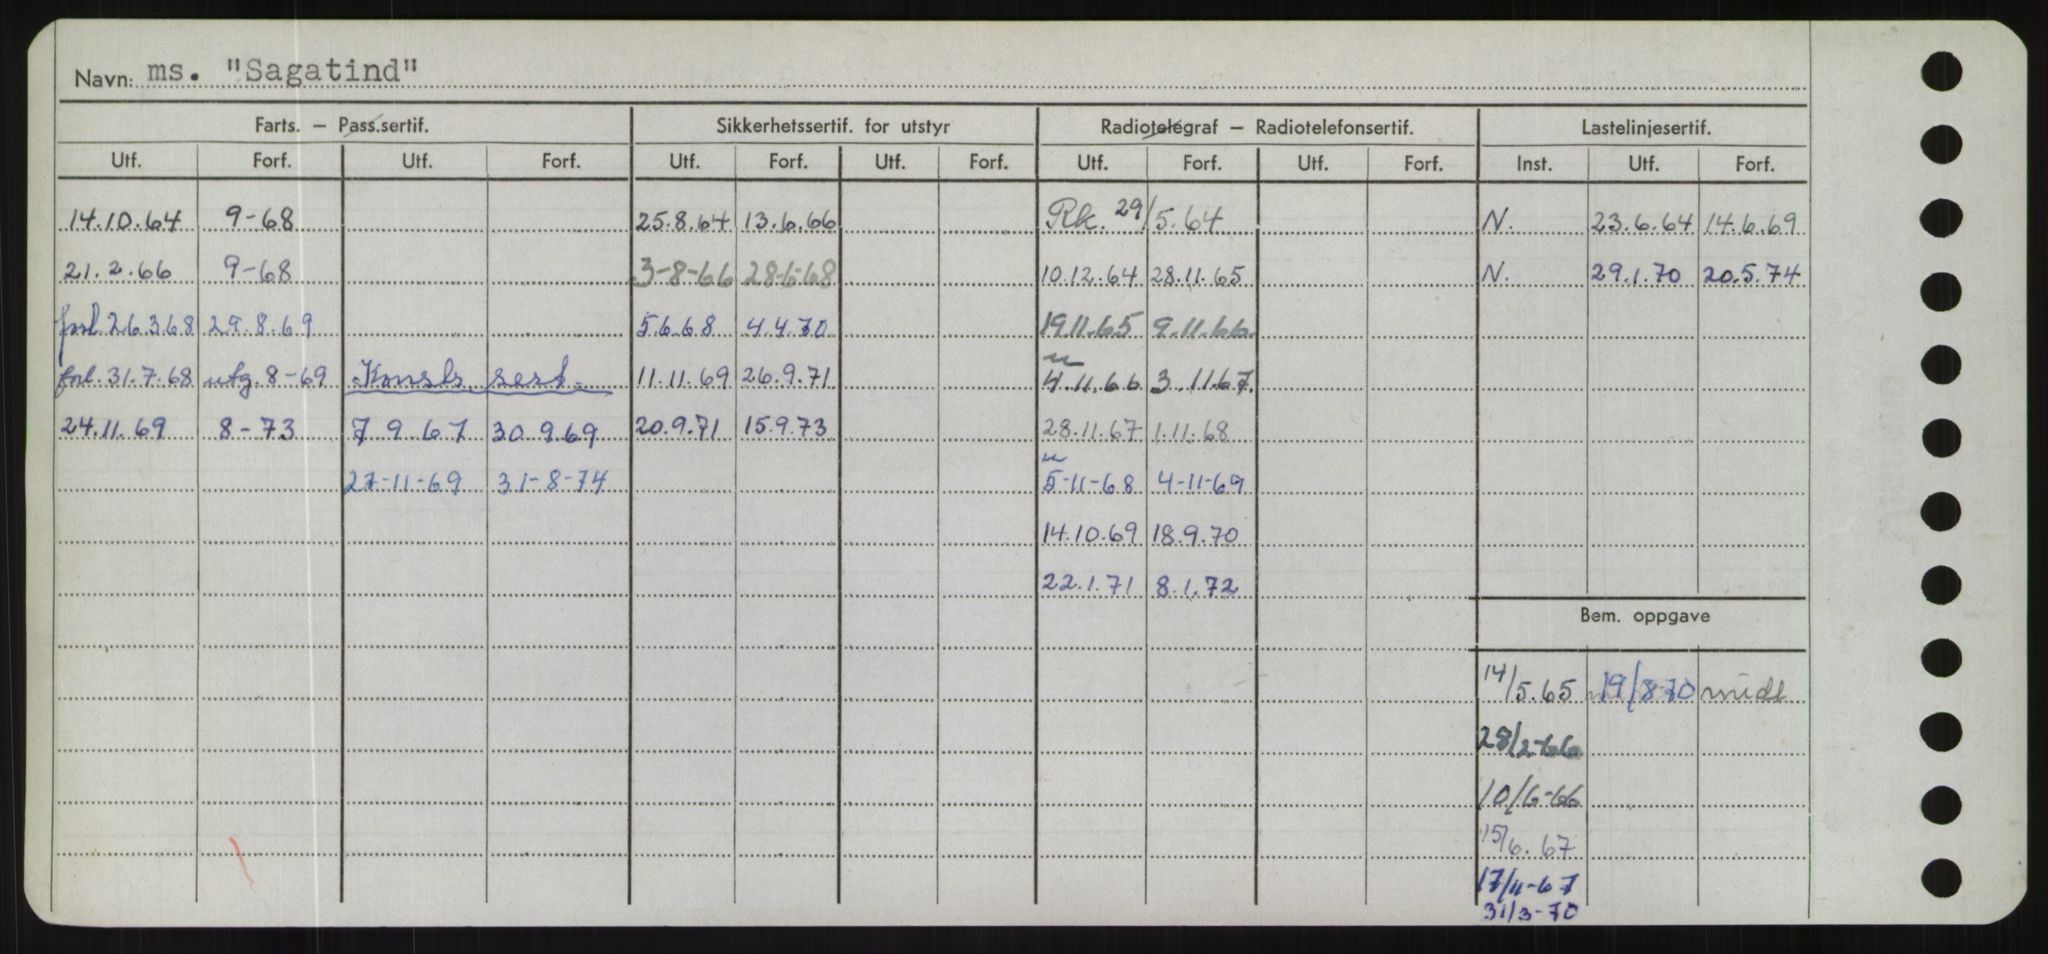 Navn: ms. "Sagatind"
Farts. – Pass.sertif. Sikkerhetssertif. for utstyr Radiotelegraf – Radiotelefonsertif. Lastelinjesertif.
Utf. Forf. Utf. Forf. Utf. Forf. Utf. Forf. Utf. Forf. Utf. Forf. Inst. Utf. Forf.
14.10.64 9-68 25.8.64 13.6.66 Rk. 29/5.64 N. 23.6.64 14.6.69
21.2.66 9-68 3-8-66 28-6-68 10.12.64 28.11.65 N. 29.1.70 20.5.74
forl. 26.3.68 29.8.69 5.6.68 4.4.70 19.11.65 9.11.66.
forl. 31.7.68 utg. 8-69 Konstr. sert. 11.11.69 26.9.71 4.11.66 3.11.67.
24.11.69 8-73 7.9.67 30.9.69 20.9.71 15.9.73 28.11.67 1.11.68
27-11-69 31-8-74 5-11-68 4-11-69
14.10.69 18.9.70
22.1.71 8.1.72
Bem. oppgave
14/5.65 19/8-70 midl
28/2-66
10/6-66
15/6.67
17/11-67
31/3-70